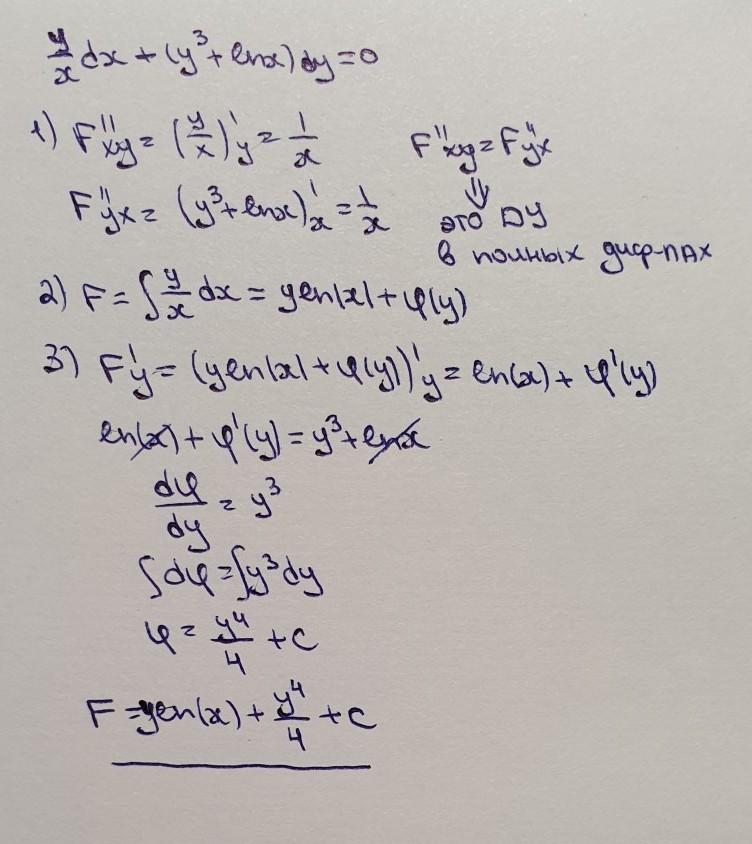 y/x dx + (y³ + ln x) dy = 0
1) F''xy = (y/x)'y = 1/x
F''xy = F''yx
F''yx = (y³ + ln x)'x = 1/x
⇓
это ДУ
в полных диф-лах
2) F = ∫ y/x dx = y ln|x| + φ(y)
3) F'y = (y ln|x| + φ(y))'y = ln(x) + φ'(y)
ln(x) + φ'(y) = y³ + ln x
dφ/dy = y³
∫dφ = ∫y³dy
φ = y⁴/4 + C
F = y ln(x) + y⁴/4 + C